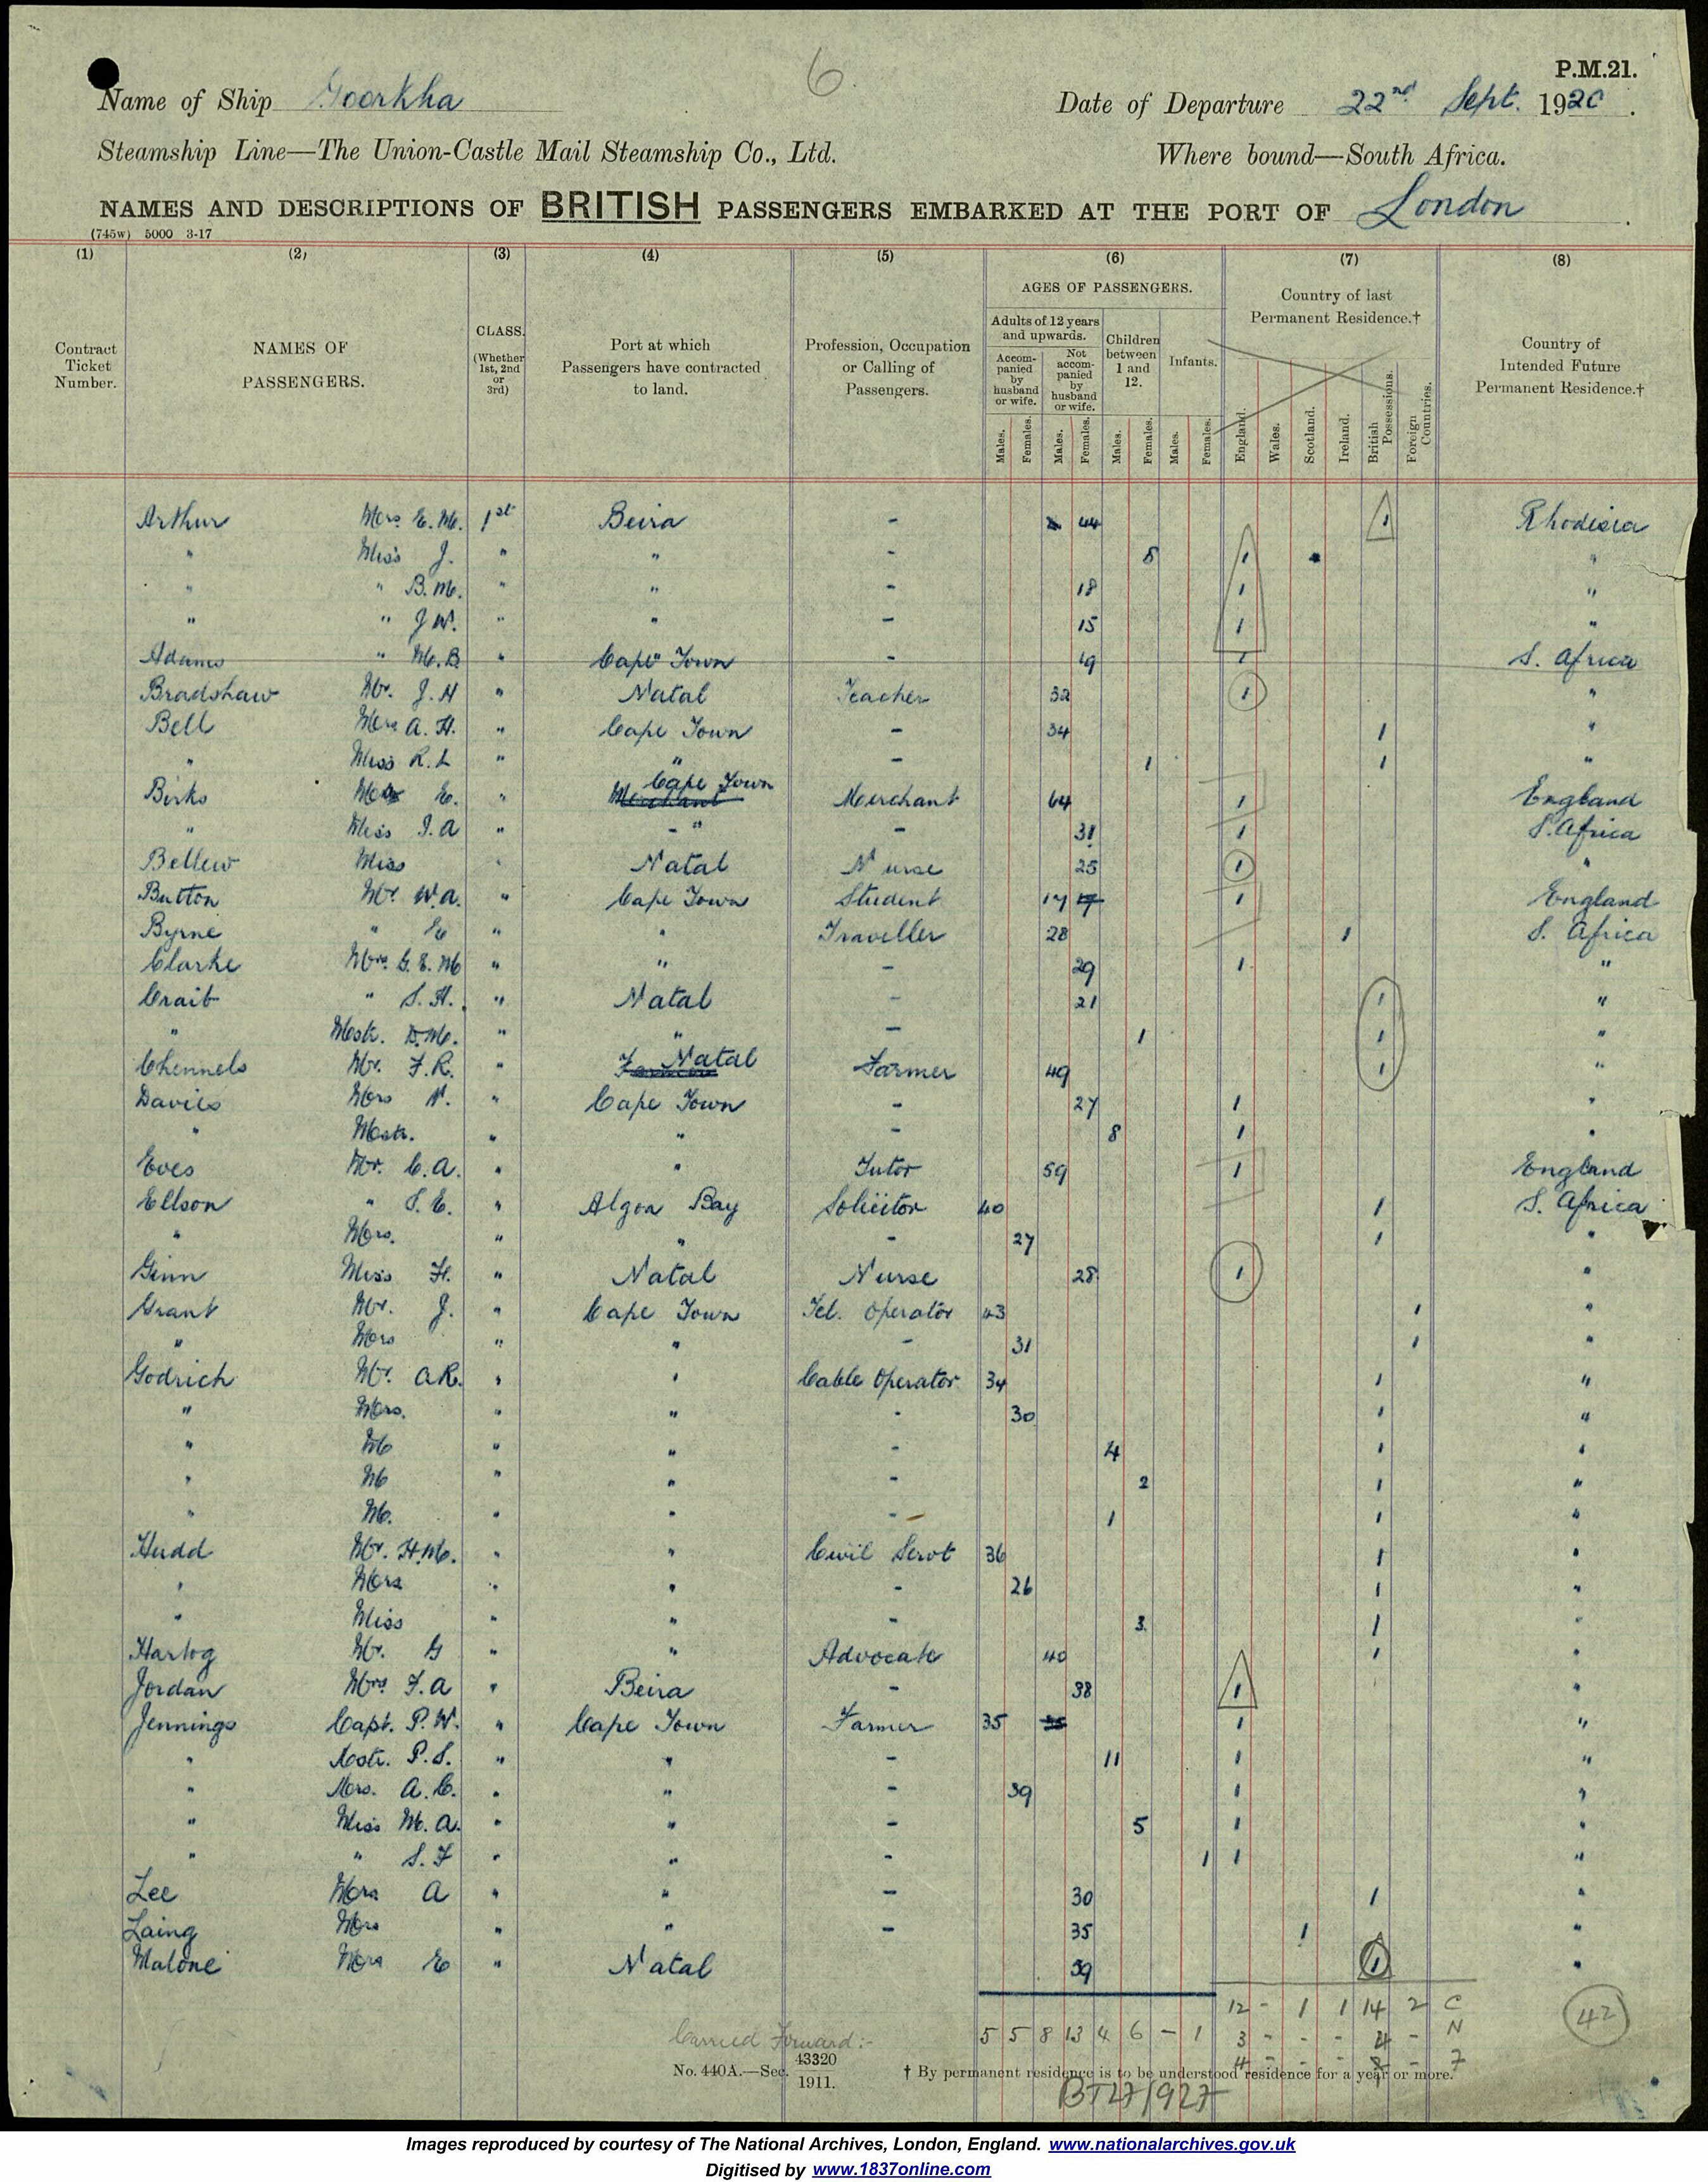 6
P.M.21.
Name of Ship Goorkha Date of Departure 22nd Sept. 1920.
Steamship Line—The Union-Castle Mail Steamship Co., Ltd. Where bound—South Africa.
NAMES AND DESCRIPTIONS OF BRITISH PASSENGERS EMBARKED AT THE PORT OF London.
(745w) 5000 3-17
(1) (2) (3) (4) (5) (6) (7) (8)
Contract Ticket Number.
NAMES OF PASSENGERS.
CLASS. (Whether 1st, 2nd or 3rd)
Port at which Passengers have contracted to land.
Profession, Occupation or Calling of Passengers.
AGES OF PASSENGERS.
Adults of 12 years and upwards.
Accompanied by husband or wife.
Not accompanied by husband or wife.
Children between 1 and 12.
Infants.
Males. Females. Males. Females. Males. Females. Males. Females.
Country of last Permanent Residence.†
England. Wales. Scotland. Ireland. British Possessions. Foreign Countries.
Country of Intended Future Permanent Residence.†
Arthur Mrs E. M. 1st Beira - 44 1 Rhodesia
" Miss J. " " - 8 1 "
" " B. M. " " - 18 1 "
" " J W. " " - 15 1 "
Adams " M. B. " Cape Town - 19 1 S. Africa
Bradshaw Mr. J. H " Natal Teacher 32 1 "
Bell Mrs A. H. " Cape Town - 34 1 "
" Miss R. L " " - 1 1 "
Birks E. " Merchant Cape Town Merchant 64 1 England
" Miss I. A " - " - 31 1 S. Africa
Bellew Miss " Natal Nurse 25 1 "
Button Mr W. A. " Cape Town Student 17 17 1 England
Byrne " E " " Traveller 28 1 S. Africa
Clarke Mrs. G. E. M " " - 29 1 "
Craib " S. H. " Natal - 21 1 "
" Mstr. D. M. " " - 1 1 "
Chennels Mr. F. R. " Natal Farmer 49 1 "
Davies Mrs N. " Cape Town - 27 1 "
" Mstr. " " - 8 1 "
Eves Mr. C. A. " " Tutor 59 1 England
Ellson " S. E. " Algoa Bay Solicitor 40 1 S. Africa
" Mrs. " " - 27 1 "
Ginn Miss H. " Natal Nurse 28 1 "
Grant Mr. J. " Cape Town Tel. Operator 43 1 "
" Mrs " " - 31 1 "
Godrich Mr. A R. " " Cable Operator 34 1 "
" Mrs. " " - 30 1 "
" M " " - 4 1 "
" M " " - 2 1 "
" M. " " - 1 1 "
Hudd Mr. H. M. " " Civil Servt 36 1 "
" Mrs " " - 26 1 "
" Miss " " - 3 1 "
Hartog Mr. G " " Advocate 40 1 "
Jordan Mrs F. A " Beira - 38 1 "
Jennings Capt. P. W. " Cape Town Farmer 35 35 1 "
" Mstr. P. S. " " - 11 1 "
" Mrs. A. C. " " - 39 1 "
" Miss M. A. " " - 5 1 "
" " S. F " " - 1 1 "
Lee Mrs A " " - 30 1 "
Laing Mrs " " - 35 1 "
Malone Mrs E " Natal 39 1 "
12 - 1 1 14 2 C
Carried Forward:- 5 5 8 13 4 6 - 1 3 - - - 4 - N
42
4 - - - 8 - 7
No. 440A.—Sec. 43320 1911.
† By permanent residence is to be understood residence for a year or more.
BT27/927
Images reproduced by courtesy of The National Archives, London, England. www.nationalarchives.gov.uk
Digitised by www.1837online.com